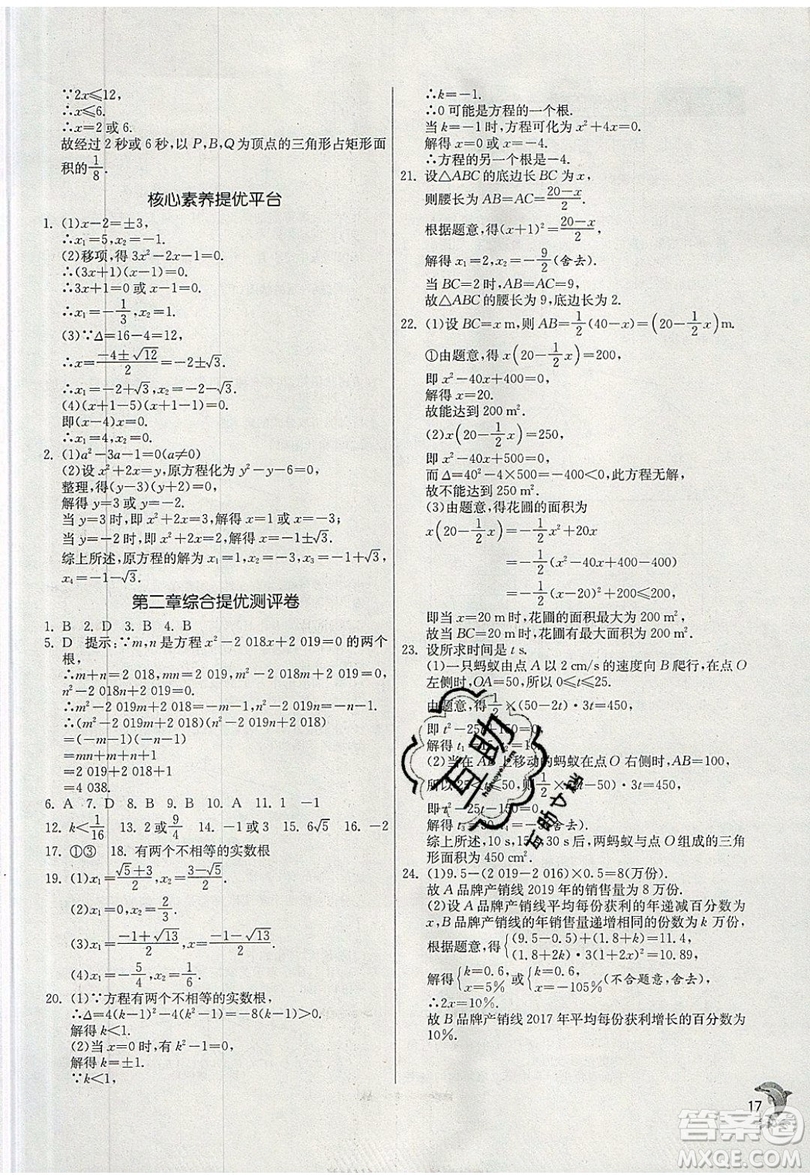 ∵2x≤12,
∴x≤6.
∴x=2或6.
故经过2秒或6秒,以P,B,Q为顶点的三角形占矩形面
积的1/8.
核心素养提优平台
1. (1)x-2=±3,
∴x₁=5,x₂=-1.
(2)移项,得3x²-2x-1=0.
∴(3x+1)(x-1)=0.
∴3x+1=0或x-1=0.
∴x₁=-1/3,x₂=1.
(3)∵Δ=16-4=12,
∴x=(-4±√12)/2=-2±√3.
∴x₁=-2+√3,x₂=-2-√3.
(4)(x+1-5)(x+1-1)=0.
即(x-4)x=0.
∴x₁=4,x₂=0.
2. (1)a²-3a-1=0(a≠0)
(2)设x²+2x=y,原方程化为y²-y-6=0,
整理,得(y-3)(y+2)=0.
解得y=3或y=-2.
当y=3时,即x²+2x=3,解得x=1或x=-3;
当y=-2时,即x²+2x=-2,解得x=-1±√3.
综上所述,原方程的解为x₁=1,x₂=-3,x₃=-1+√3,
x₄=-1-√3.
第二章综合提优测评卷
1. B 2. D 3. B 4. B
5. D 提示:∵m,n是方程x²-2 018x+2 019=0的两个
根,
∴m+n=2 018,mn=2 019.
∴m²-2 018m+2 019=0,n²-2 018n+2 019=0.
∴(m²-2 019m+2 018)(n²-2 019n+2 018)
=(-m-1)(-n-1)
=mn+m+n+1
=2 019+2 018+1
=4 038.
6. A 7. D 8. B 9. A 10. A 11. 1 -1
12. k<1/16 13. 2或9/4 14. -2或3 15. 6√5 16. -2
17. ①③ 18. 有两个不相等的实数根
19. (1)x₁=(√5+3)/2,x₂=(3-√5)/2.
(2)x₁=0,x₂=2/3.
(3)x₁=(-1+√13)/2,x₂=(-1-√13)/2.
(4)x₁=-5/4,x₂=-1/2.
20. (1)∵方程有两个不相等的实数根,
∴Δ=4(k-1)²-4(k²-1)=-8k+8>0.
解得k<1.
(2)当x=0时,k²-1=0,
解得k=±1.
∵k<1,
∴k=-1.
∴0可能是方程的一个根.
当k=-1时,方程可化为x²+4x=0.
解得x=0或x=-4.
∴方程的另一个根是-4.
21. 设△ABC的底边长BC为x,
则腰长为AB=AC=(20-x)/2.
根据题意,得(x+1)·(20-x)/2=27.
解得x₁=2,x₂=-9/2(舍去).
当BC=2时,AB=AC=9.
故△ABC的腰长为9,底边长为2.
22. (1)设BC=x m,则AB=1/2(40-x)=(20-1/2x)m.
①由题意,得x(20-1/2x)=200,
即x²-40x+400=0,
解得x=20.
故能达到200 m².
(2)x(20-1/2x)=250,
即x²-40x+500=0,
而Δ=40²-4×500=-400<0,此方程无解,
故不能达到250 m².
(3)由题意,得花圃的面积为
x(20-1/2x)=-1/2x²+20x
=-1/2(x²-40x+400-400)
=-1/2(x-20)²+200≤200,
即当x=20 m时,花圃的面积最大为200 m².
故当BC=20 m时,花圃的面积最大为200 m².
23. 设所求时间是t s.
(1)一只蚂蚁由点A以2 cm/s的速度向B爬行,在点O
左侧时,OA=50,所以0≤t≤25.
由题意,得1/2×(50-2t)·3t=450,
即t²-25t+150=0.
解得t₁=
(2)当A上移动的蚂蚁在点O右侧时,AB=100,
所以25<t≤50,1/2(2t-50)·3t=450,
即t²-25t-150=0.
解得
综上所述,10 s,15 s,30 s后,两蚂蚁与点O组成的三角
形面积为450 cm².
24. (1)9.5-(2 019-2 016)×0.5=8(万份).
故A品牌产销线2019年的销售量为8万份.
(2)设A品牌产销线平均每份获利的年递减百分数为x,
B品牌产销线的年销售量递增相同的份数为k万份,
根据题意,得{(9.5-0.5)+(1.8+k)=11.4,
(1.8+2k)·3(1+2x)²=10.8.
解得{k=0.6,x=5%或{k=0.6,x=-105%(不合题意,舍去).
∴2x=10%.
故B品牌产销线2017年平均每份获利增长的百分数为
10%.
互助
17
答案圈
MXQE.COM